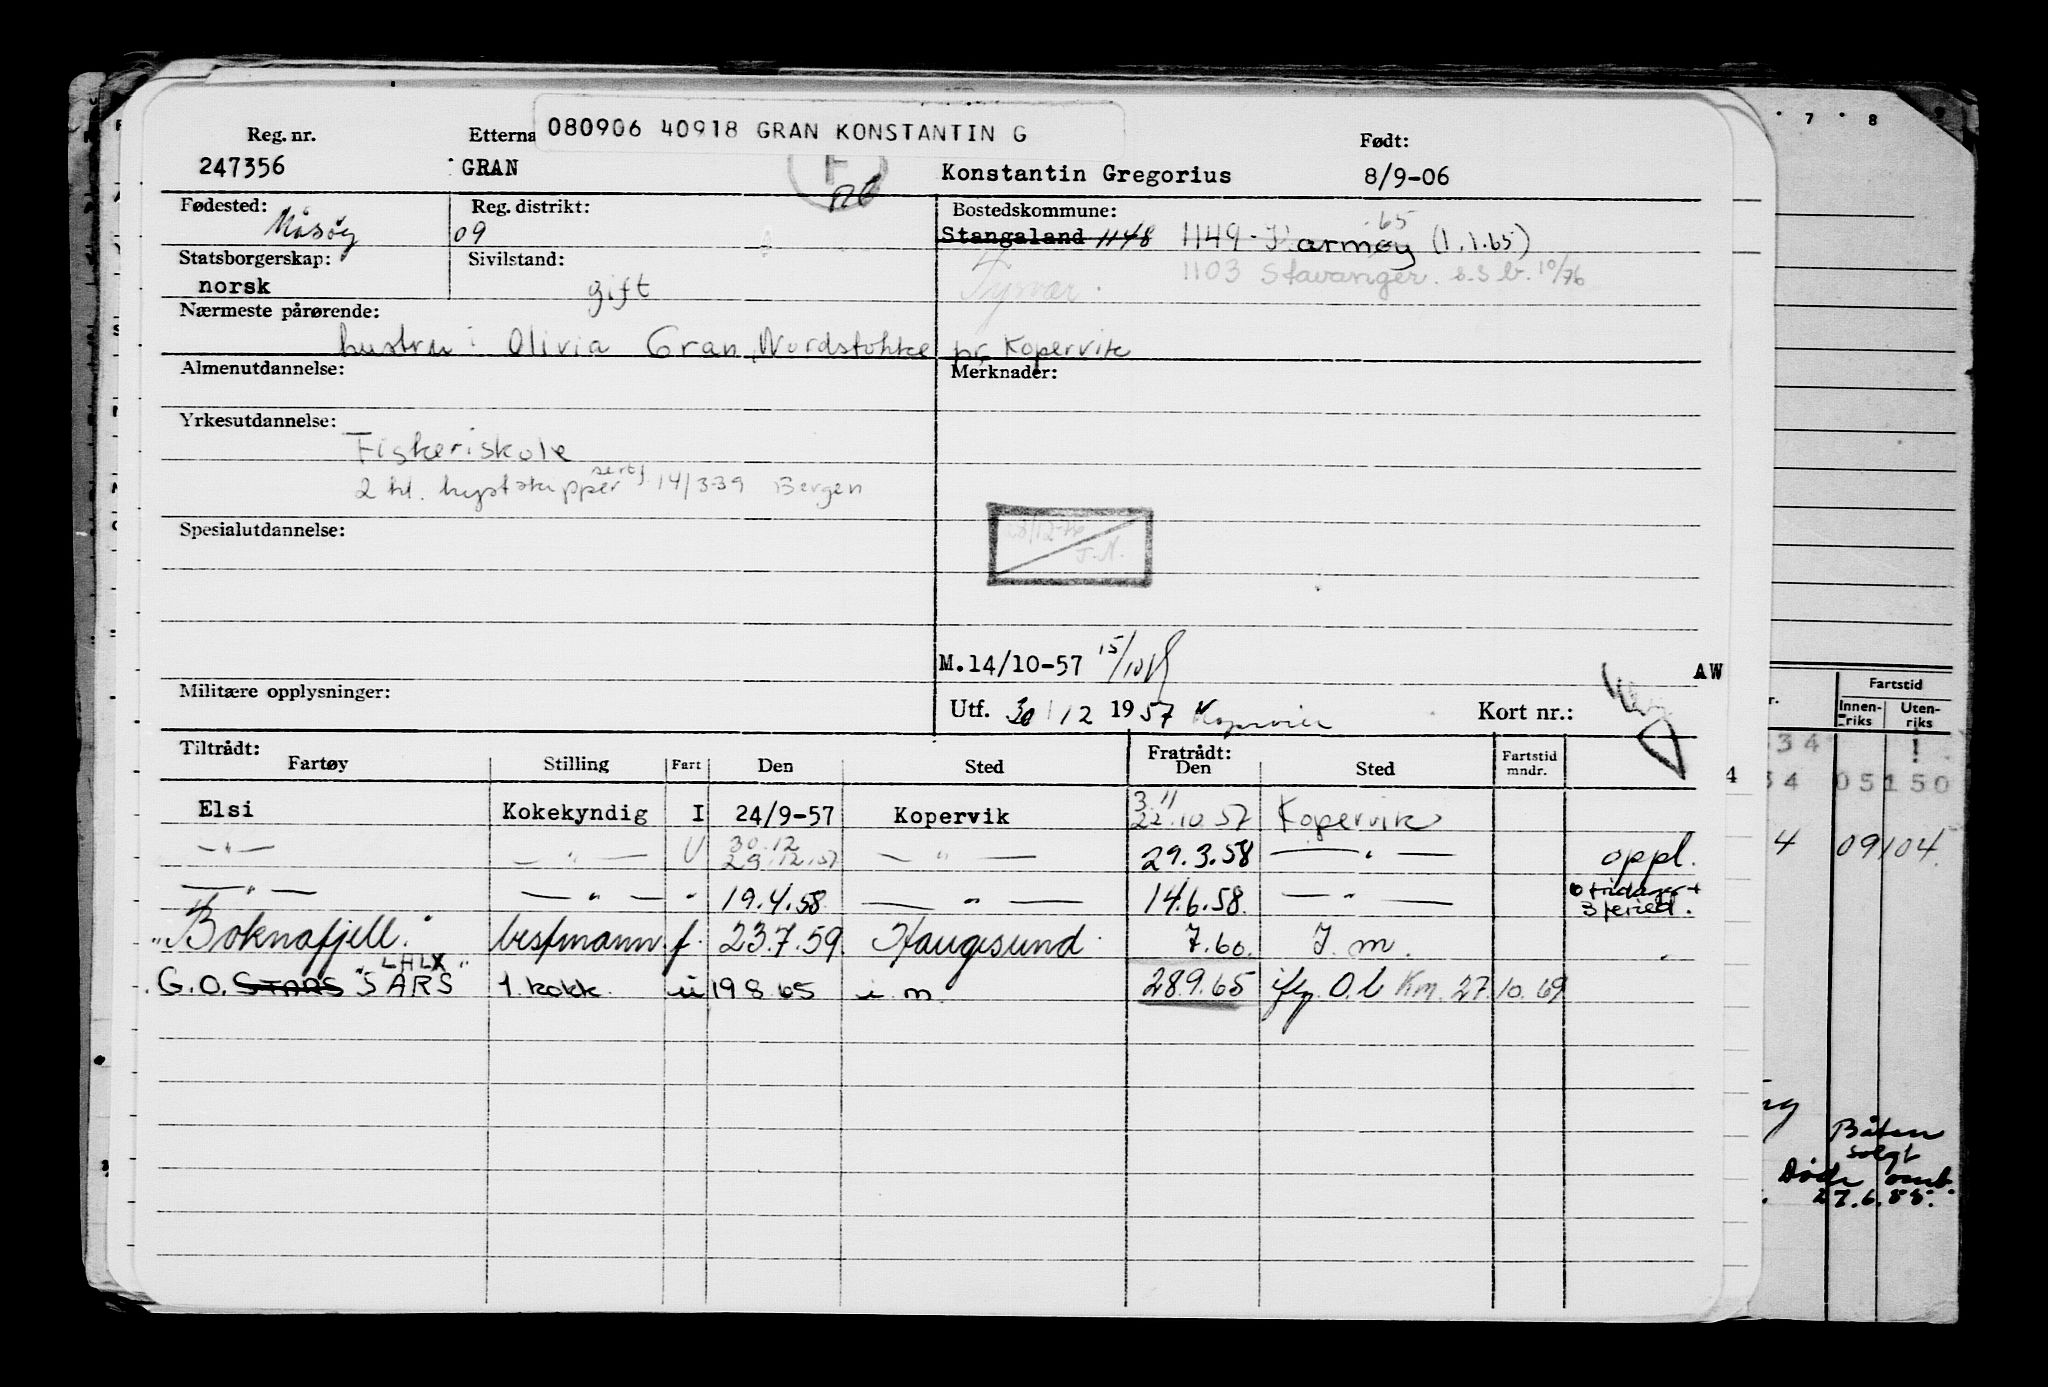 080906 40918 GRAN KONSTANTIN G
Reg. nr. Etterna Født:
247356 GRAN Konstantin Gregorius 8/9-06
Fødested: Måsøy Reg. distrikt: 09 Bostedskommune:
Stangaland 1148 1149 - Karmøy (1.1.65)
65
Statsborgerskap: norsk Sivilstand: gift
Tysvær. 1103 Stavanger. s.s b. 10/76
Nærmeste pårørende:
hustru: Olivia Gran, Nordstokke pr. Kopervik
Almenutdannelse: Merknader:
Yrkesutdannelse:
Fiskeriskole
2 kl. kystskipper sert. 14/3-39 Bergen
Spesialutdannelse:
M.14/10-57 15/10 AW
Militære opplysninger:
Utf. 30/12 1957 Kopervik Kort nr.:
Tiltrådt: Fratrådt:
Fartøy Stilling Fart Den Sted Den Sted Fartstid mndr.
Elsi Kokekyndig I 24/9-57 Kopervik 3.11 22.10.57 Kopervik
—"— —"— U 30.12 29.12.57 —"— 29.3.58 —"— oppl.
—"— —"— " 19.4.58 —"— 14.6.58. —"—
"Boknafjell." bestmann. f. 23.7.59. Haugesund 7.60. I. m.
G.O. STARS "SARS" LHLX 1. kokk ü 19 8 65 i. m. 28.9.65 iflg. O.b Km. 27.10.69
7 8
Fartstid
Innen-riks Uten-riks
34
34 05150
4 09104
Båten
solgt
Døde
27.6.88.